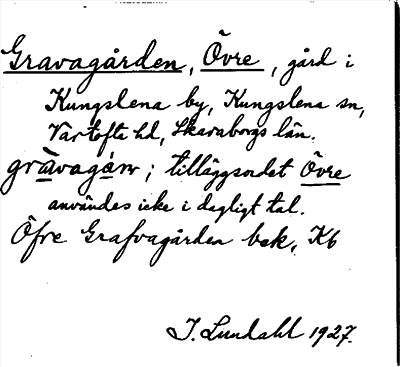 Gravagården, Övre, gård i
Kungslena by, Kungslena sn,
Vartofta hd, Skaraborgs län.
gràvagár̄n; tilläggsordet Övre
användes icke i dagligt tal.
Öfre Grafvagården bsk, Kb
I. Lundahl 1927.